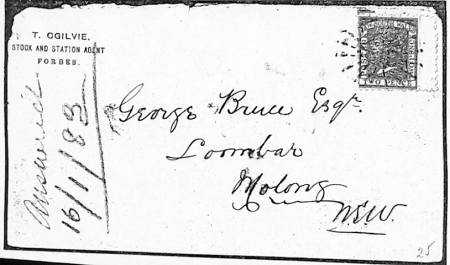 T. OGILVIE,
STOCK AND STATION AGENT
FORBES.
TWO PENCE
George Bruce Esqr.
Loombar
Molong
N.S.W.
Answered
16/1/83
25